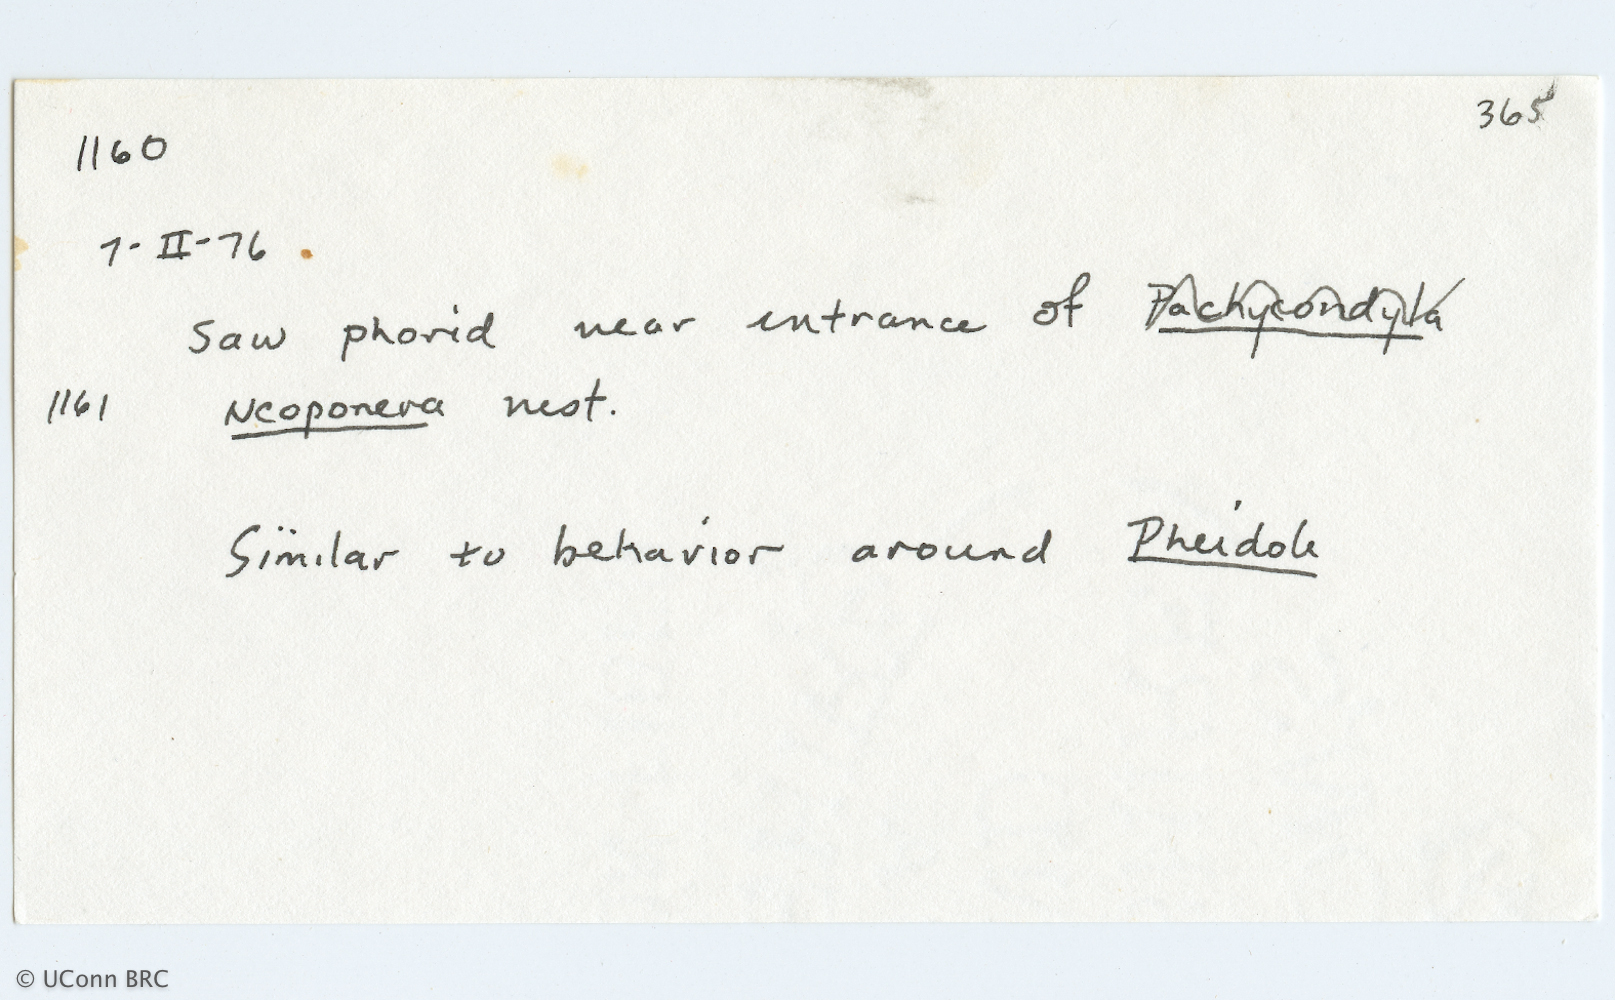 365
1160
7-II-76.
Saw phorid near entrance of Pachycondyla
1161 Neoponera nest.
Similar to behavior around Pheidole
© UConn BRC